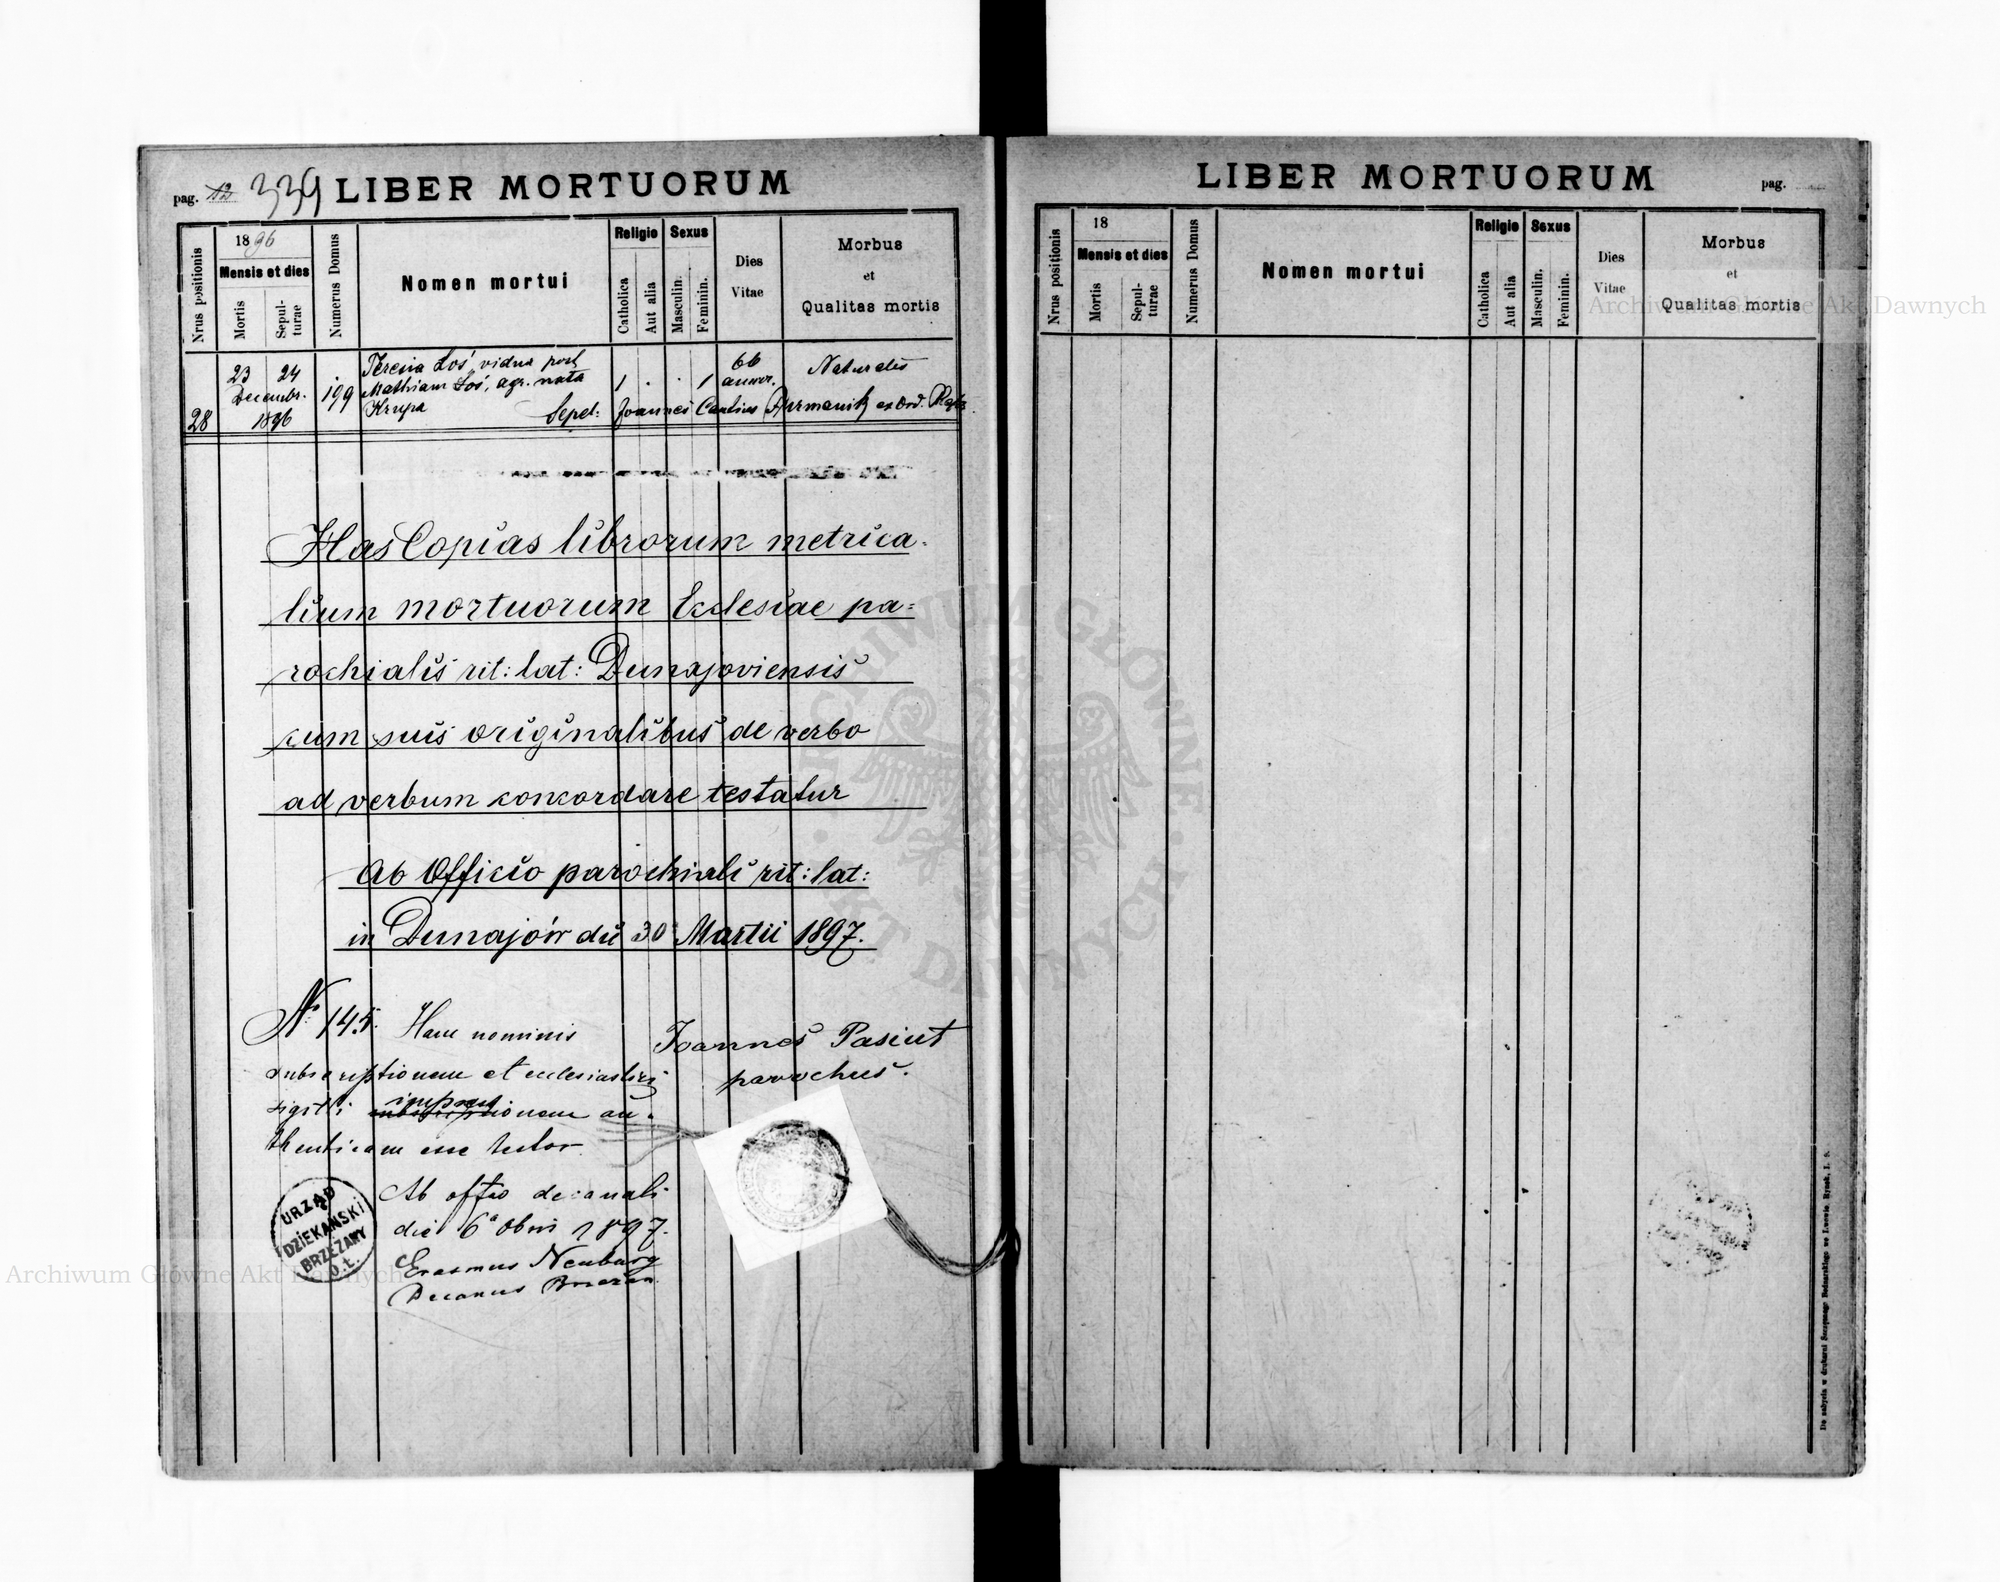 pag. 339 LIBER MORTUORUM
Nrus positionis
1896
Mensis et dies
Mortis
Sepulturae
Numerus Domus
Nomen mortui
Religio
Catholica
Aut alia
Sexus
Masculin.
Feminin.
Dies
Vitae
Morbus
et
Qualitas mortis
28
23 24
Decembr.
1896
199
Teresia Łoś, vidua post
Mathiam Łoś, agr. nata
Krupa
1 . . 1
66
annor.
Naturalis
Sepel: Joannes Cantius ex Ord.
Has Copias librorum metrica-
lium mortuorum Ecclesiae pa=
rochialis rit: lat: Dunajoviensis
cum suis originalibus de verbo
ad verbum concordare testatur
Ab Officio parochiali rit: lat:
in Dunajów die 30 Martii 1897.
Joannes Pasiut
parochus.
№ 145. Hanc nominis
subscriptionem et ecclesiastici
sigilli impressionem au-
thenticam esse testor.
Ab offio decanali
die 6a 1897.
Erasmus Neuburg
Decanus Brzeżan.
URZĄD
DZIEKAŃSKI
BRZEŻANY
O.Ł.
LIBER MORTUORUM
pag.
Nrus positionis
18
Mensis et dies
Mortis
Sepulturae
Numerus Domus
Nomen mortui
Religio
Catholica
Aut alia
Sexus
Masculin.
Feminin.
Dies
Vitae
Morbus
et
Qualitas mortis
Do nabycia w drukarni Szczęsnego Bednarskiego we Lwowie, Rynek, l. 9.
ARCHIWUM GŁÓWNE AKT DAWNYCH
Archiwum Główne Akt Dawnych
Archiwum Główne Akt Dawnych